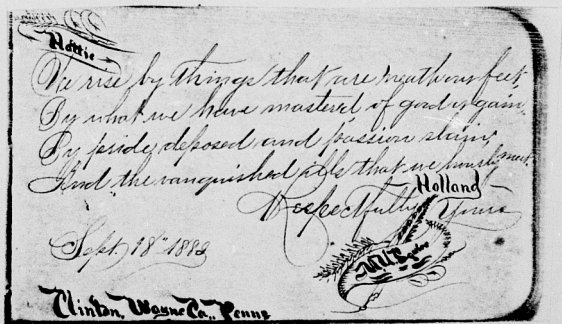 Hattie
We rise by things that are 'neath our feet,
By what we have mastered of good or gain,
By pride deposed and passion slain,
And the vanquished ills that we hourly meet.
Holland
Respectfully Yours
Sept. 18th 1882
Clinton, Wayne Co., Penna